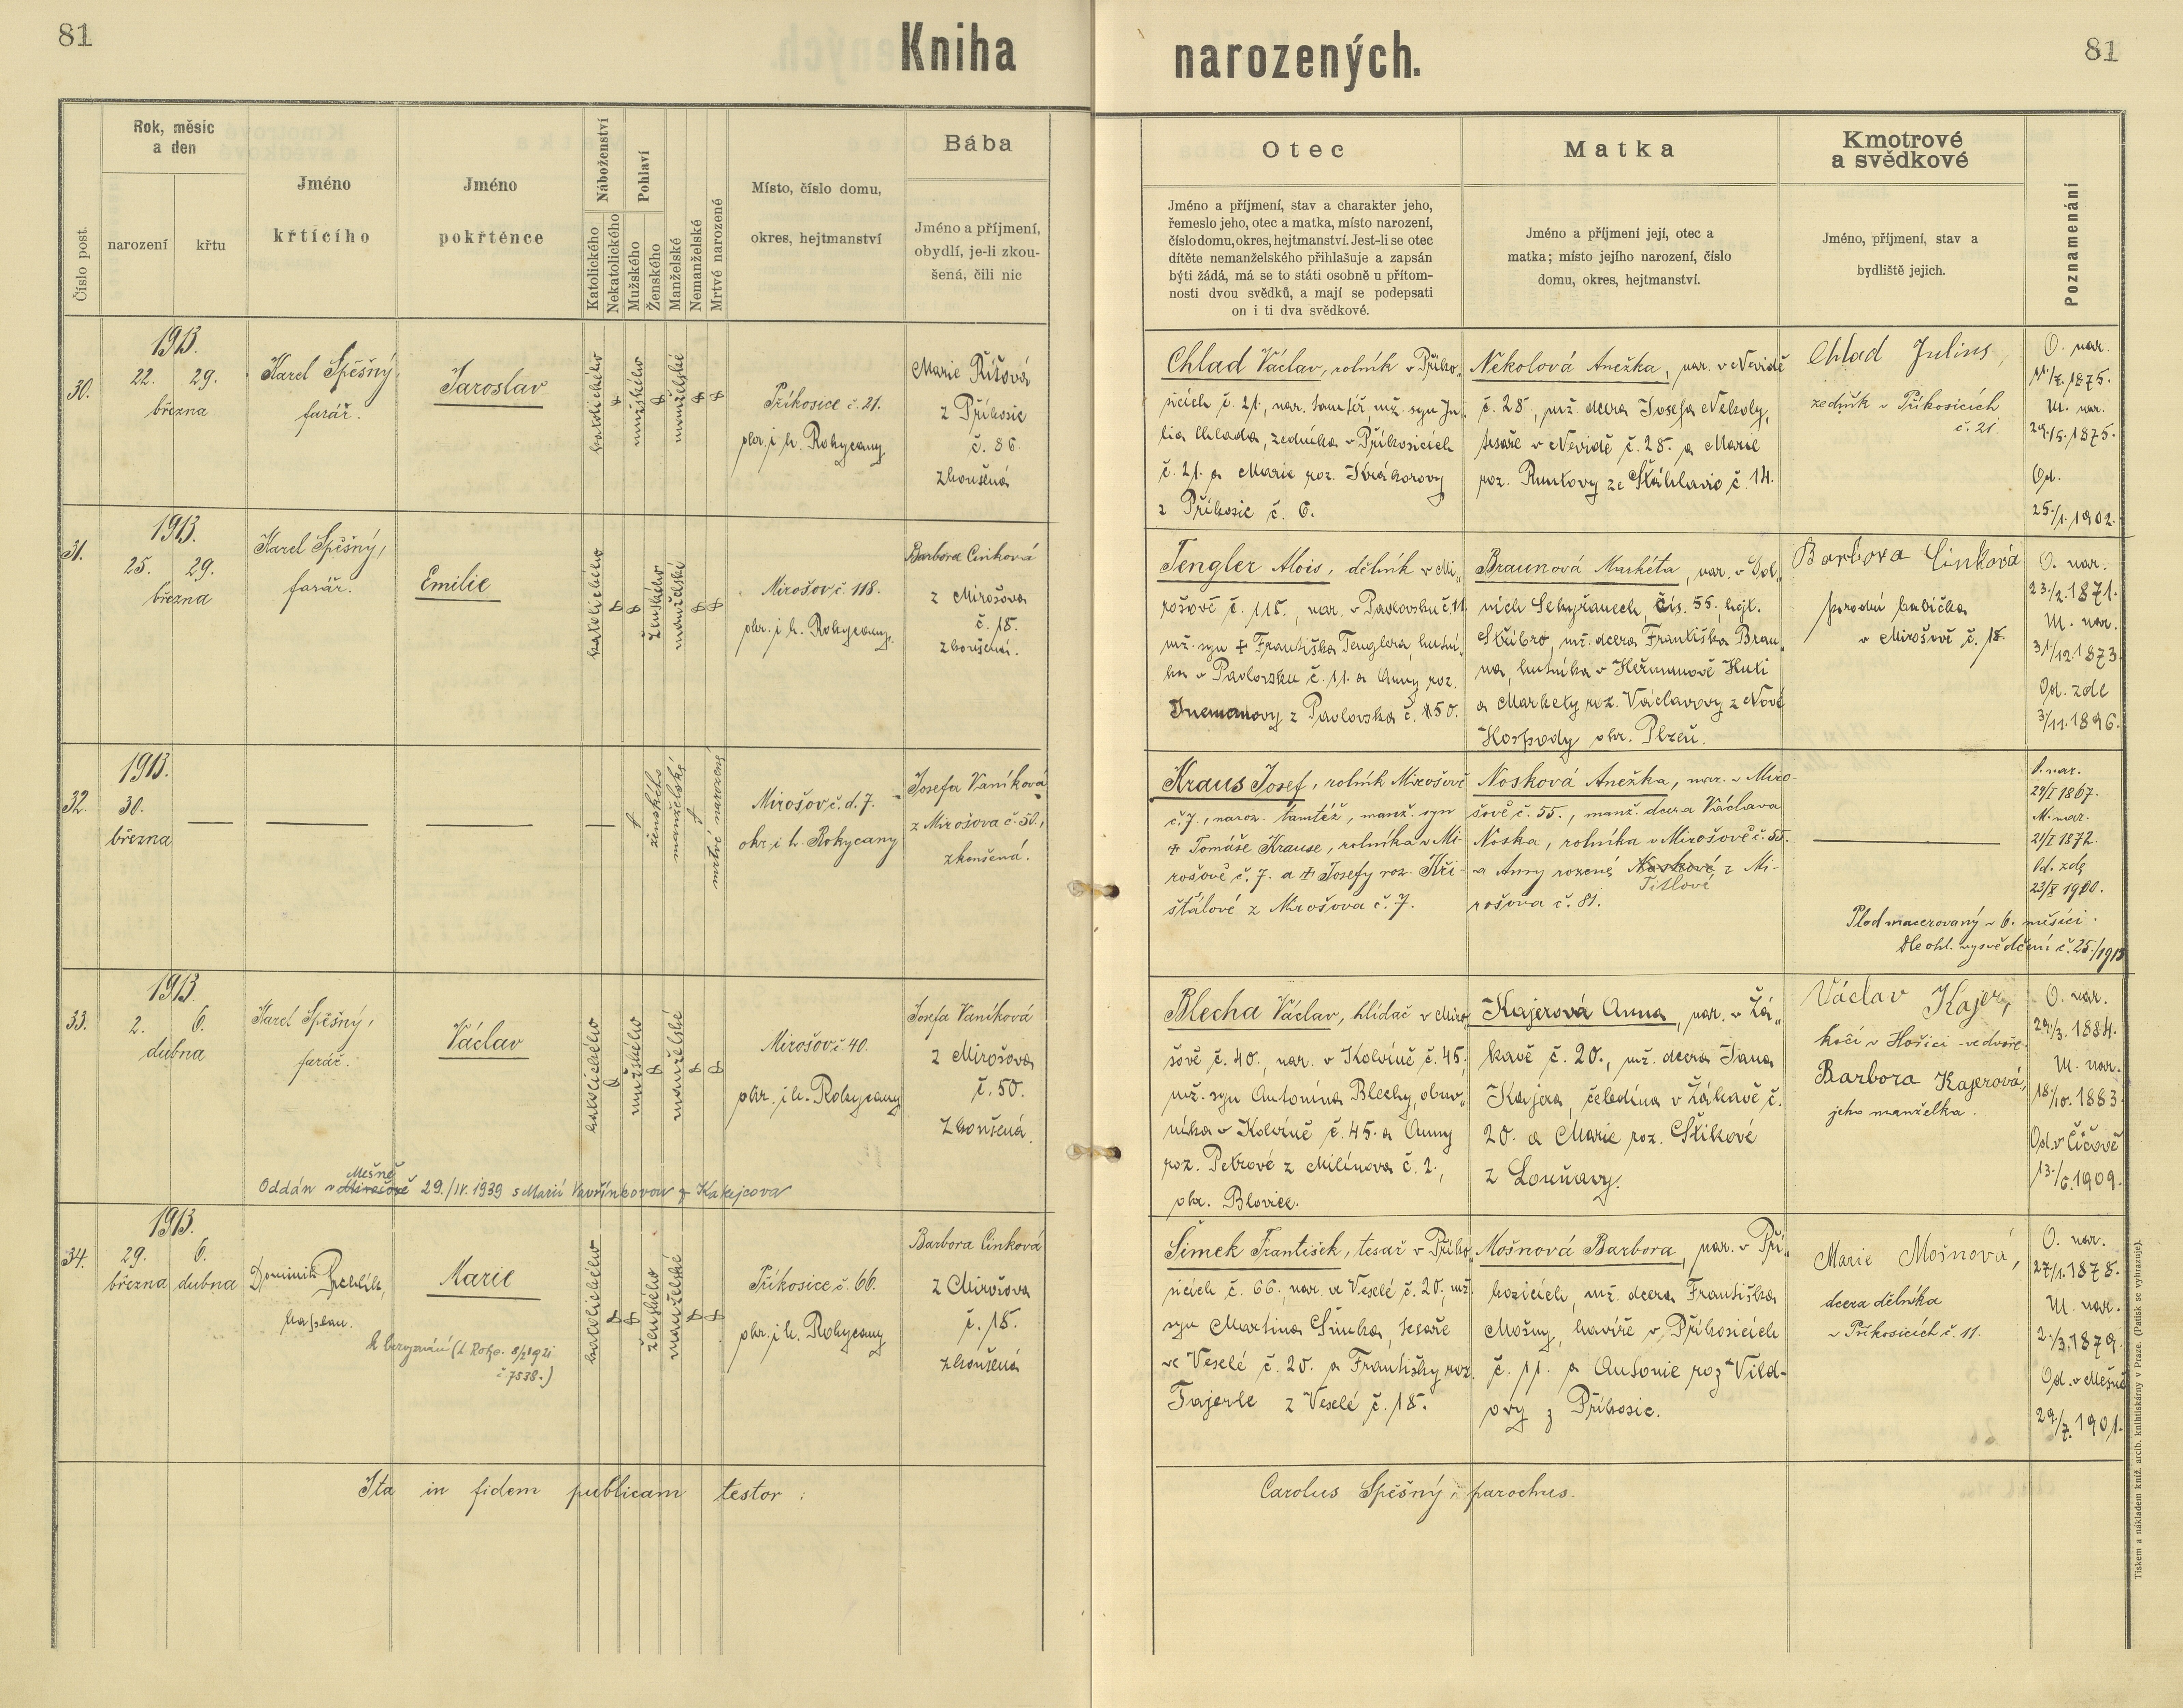 81
Kniha narozených.
81
Číslo post.
Rok, měsíc
a den
narození
křtu
Jméno
křtícího
Jméno
pokřtěnce
Náboženství
Katolického
Nekatolického
Pohlaví
Mužského
Ženského
Manželské
Nemanželské
Mrtvě narozené
Místo, číslo domu,
okres, hejtmanství
Bába
Jméno a příjmení,
obydlí, je-li zkou-
šená, čili nic
Otec
Jméno a příjmení, stav a charakter jeho,
řemeslo jeho, otec a matka, místo narození,
číslo domu, okres, hejtmanství. Jest-li se otec
dítěte nemanželského přihlašuje a zapsán
býti žádá, má se to státi osobně u přítom-
nosti dvou svědků, a mají se podepsati
on i ti dva svědkové.
Matka
Jméno a příjmení její, otec a
matka; místo jejího narození, číslo
domu, okres, hejtmanství.
Kmotrové
a svědkové
Jméno, příjmení, stav a
bydliště jejich.
Poznamenání
30.
1913.
22. 29.
března
Karel Spěšný,
farář.
Jaroslav
katolického
mužského
manželské
Příkosice č. 21.
okr. i h. Rokycany
Marie Říšová
z Příkosic
č. 86
zkoušená
Chlad Václav, rolník v Příko„
sicích č. 21, nar. tamtéž mž. syn Ju„
lia Chlada, zedníka v Příkosicích
č. 21. a Marie roz. Krákorovy
z Příkosic č. 6.
Nekolová Anežka, nar. v Nevidě
č. 28., mž. dcera Josefa Nekoly,
tesaře v Nevidě č. 28. a Marie
roz. Runtovy ze Šťáhlavic č. 14.
Chlad Julius,
zedník v Příkosicích
č. 21.
O. nar.
1875.
M. nar.
29./5. 1875.
Od.
25./1. 1902.
31.
1913.
25. 29.
března
Karel Spěšný,
farář.
Emilie
katolického
ženského
manželské
Mirošov, č. 118.
okr. i h. Rokycany.
Barbora Cinková
z Mirošova
č. 18.
zkoušená.
Tengler Alois, dělník v Mi„
rošově č. 118., nar. v Pavlovsku č. 11
mž. syn + Františka Tenglera, hutní„
ka v Pavlovsku č. 11. a Anny roz.
z Pavlovska č. 50.
Braunová Markéta, nar. v Dol„
ních Sekyřanech, čís. 55, hejt.
Stříbro, mž. dcera Františka Brau„
na, hutníka v Heřmanově Huti
a Markety roz. Václavovy z Nové
Hospody okr. Plzeň.
Barbora Cinková
porodní babička
v Mirošově č. 18.
O. nar.
23./2. 1871.
M. nar.
31./12. 1873.
Od. zde
3/11. 1896.
32.
1913.
30.
března
ženského
manželské
mrtvě narozené
Mirošov, č. d. 7.
okr. i h. Rokycany
Josefa Vaníková
z Mirošova č. 50.,
zkoušená.
Kraus Josef, rolník Mirošově
č. 7., naroz. tamtéž, manž. syn
+ Tomáše Krause, rolníka v Mi-
rošově č. 7. a + Josefy roz. Kři-
šťálové z Mirošova č. 7.
Nosková Anežka, nar. v Miro-
šově č. 55., manž. dcera Václava
Noska, rolníka v Mirošově č. 55.
a Anny rozené Noskové z Mi-
Titlové
rošova č. 81.
O. nar.
29/I 1867.
M. nar.
21/I 1872.
Od. zde
23/X 1900.
Plod macerovaný v 6. měsíci.
Dle ohl. vysvědčení č. 25./1913
33.
1913.
2. 6.
dubna
Karel Spěšný,
farář.
Václav
katolického
mužského
manželské
Mirošov, č. 40.
okr. i h. Rokycany
Josefa Vaníková
z Mirošova
č. 50.
Zkoušená.
Oddán v Mirošově 29./IV. 1939 s Marií Vavřinkovou z Kakejcova
Mešně
Blecha Václav, hlídač v Miro„
šově č. 40., nar. v Kolvíně č. 45,
mž. syn Antonína Blechy, obuv„
níka v Kolvíně č. 45. a Anny
roz. Petrové z Milínova č. 2.,
okr. Blovice.
Kajerová Anna, nar. v Žá„
kavě č. 20., mž. dcera Jana
Kajera, čeledína v Žákavě č.
20. a Marie roz. Štikové
z Louňavy.
Václav Kajer,
kočí v Hořici ve dvoře.
Barbora Kajerová,
jeho manželka.
O. nar.
29./3. 1884.
M. nar.
18./10. 1883
Od. v Čičově
13./6. 1909.
34.
1913.
29. 6.
března dubna
Dominik
kaplan.
Marie
č. 7538.)
katolického
ženského
manželské
Příkosice č. 66.
okr. i h. Rokycany
Barbora Cinková
z Mirošova
č. 18.
zkoušená
Šimek František, tesař v Příko„
sicích č. 66., nar. ve Veselé č. 20., mž.
syn Martina Šimka, tesaře
ve Veselé č. 20. a Františky roz.
Tajerle z Veselé č. 18.
Mošnová Barbora, nar. v Pří„
kosicích, mž. dcera Františka
Mošny, havíře v Příkosicích
č. 11. a Antonie roz. Vild-
ovy z Příkosic.
Marie Mošnová,
dcera dělníka
v Příkosicích č. 11.
O. nar.
27/1. 1878.
M. nar.
2./3. 1879.
Od. v Mešně
29./7. 1901.
Ita in fidem publicam testor:
Carolus Spěšný, parochus.
Tiskem a nákladem kníž. arcib. knihtiskárny v Praze. (Patisk se vyhrazuje).